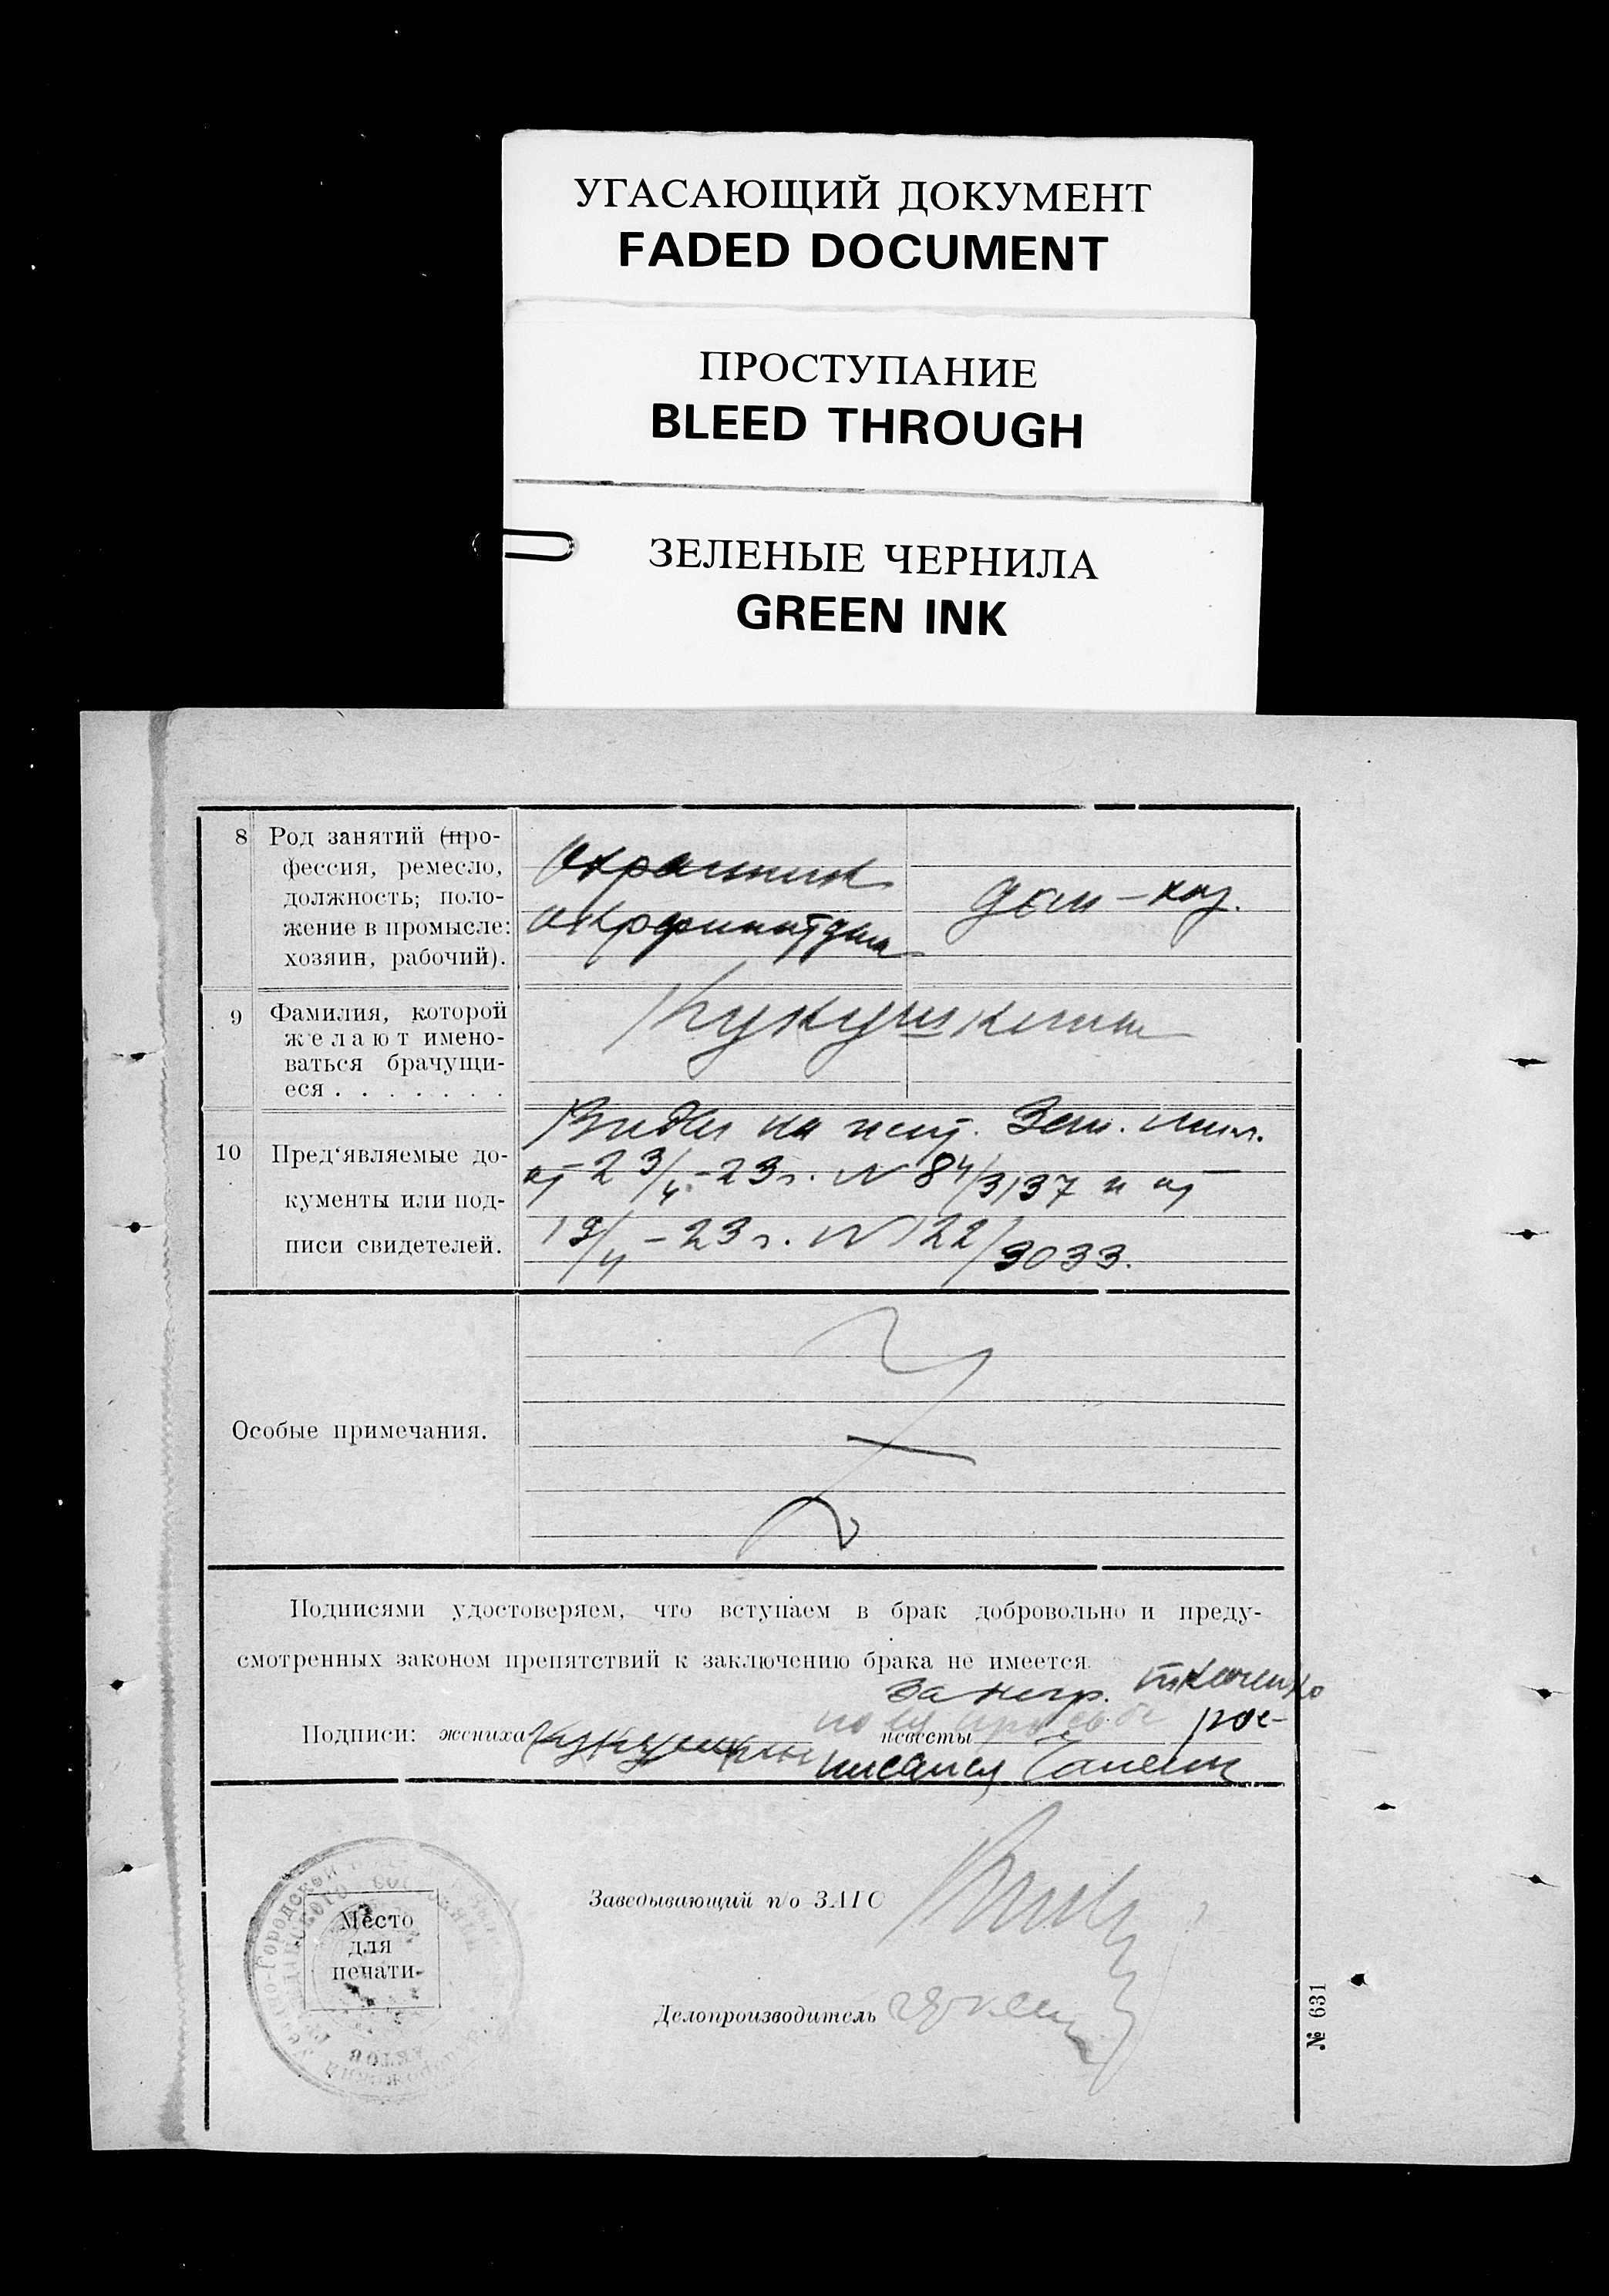 УГАСАЮЩИЙ ДОКУМЕНТ
FADED DOCUMENT
ПРОСТУПАНИЕ
BLEED THROUGH
ЗЕЛЕНЫЕ ЧЕРНИЛА
GREEN INK
8 Род занятий (про-
фессия, ремесло,
должность; поло-
жение в промысле:
хозяин, рабочий).
Охранник
дом-хоз.
9 Фамилия, которой
желают имено-
ваться брачущи-
еся . . . . . . .
Кукушкины
10 Пред'являемые до-
кументы или под-
писи свидетелей.
на
23/4-23г. N 84/3137 и от
19/4-23г. N122/3033.
Особые примечания.
Подписями удостоверяем, что вступаем в брак добровольно и преду-
смотренных законом препятствий к заключению брака не имеется
За негр.
Подписи: жениха Кукушкин невесты по ея просьбе рос-
писался
Место
для
печати
Заведывающий п/о ЗАГС
Делопроизводитель
№ 631